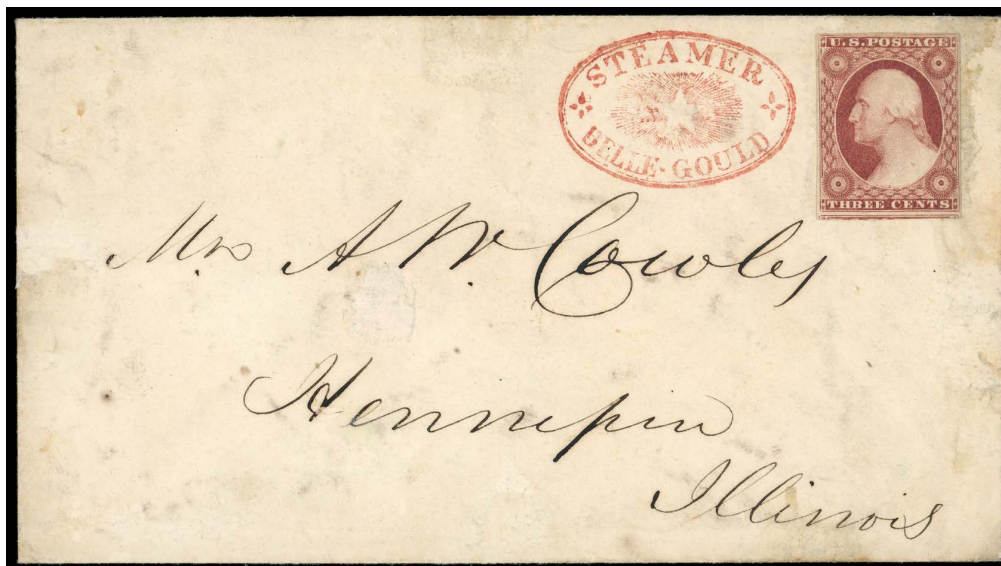 STEAMER
BELLE-GOULD
U.S. POSTAGE
THREE CENTS
Mrs A W Cowles
Hennepin
Illinois